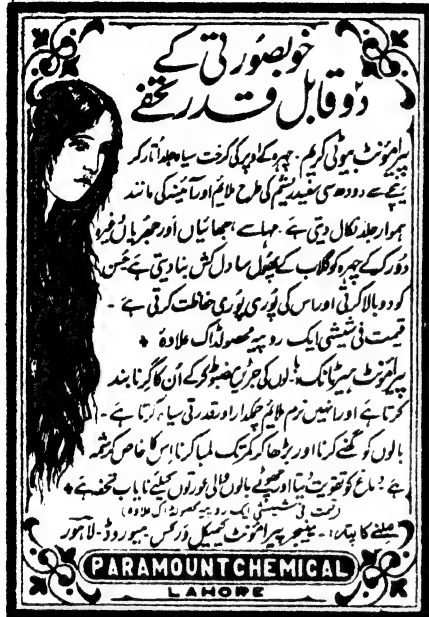 خوبصورتی کے
دو قابل قدر تحفے
پیرامؤنٹ بیوٹی کریم۔ چہرہ کے اوپر کی کرخت سیاہ جلد اتار کر
نیچے سے دودھ سی سفید ریشم کی طرح ملائم اور آئینہ کی مانند
ہموار جلد نکال دیتی ہے۔ مہاسے چھائیاں اور جھریاں وغیرہ
دور کر کے چہرہ کو گلاب کے پھول سا دل کش بنا دیتی ہے حسن
کو دوبالا کرتی اور اس کی پوری پوری حفاظت کرتی ہے۔
قیمت فی شیشی ایک روپیہ محصولڈاک علاوہ
پیرامؤنٹ ہیر ٹانک بالوں کی جڑیں مضبوط کر کے اُن کا گرنا بند
کرتا ہے اور انہیں نرم ملائم چمکدار اور قدرتی سیاہ کرتا ہے۔
بالوں کو گھنے کرنا اور بڑھا کر کمر تک لمبا کرنا اس کا خاص کرشمہ
ہے دماغ کو تقویت دیتا اور چھوٹے بالوں والی عورتوں کیلئے نایاب تحفہ ہے
(قیمت فی شیشی ایک روپیہ محصولڈاک علاوہ)
ملنے کا پتہ:۔ مینجر پیرامؤنٹ کیمیکل ورکس میوروڈ۔ لاہور
PARAMOUNT CHEMICAL
LAHORE